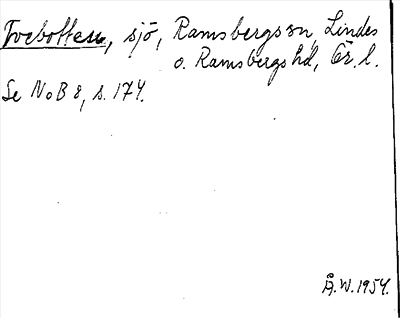 Tvebotten, sjö, Ramsbergs sn, Lindes
o. Ramsbergs hd, Ör. l.
Se NoB 8, s. 174.
Å.W. 1954.